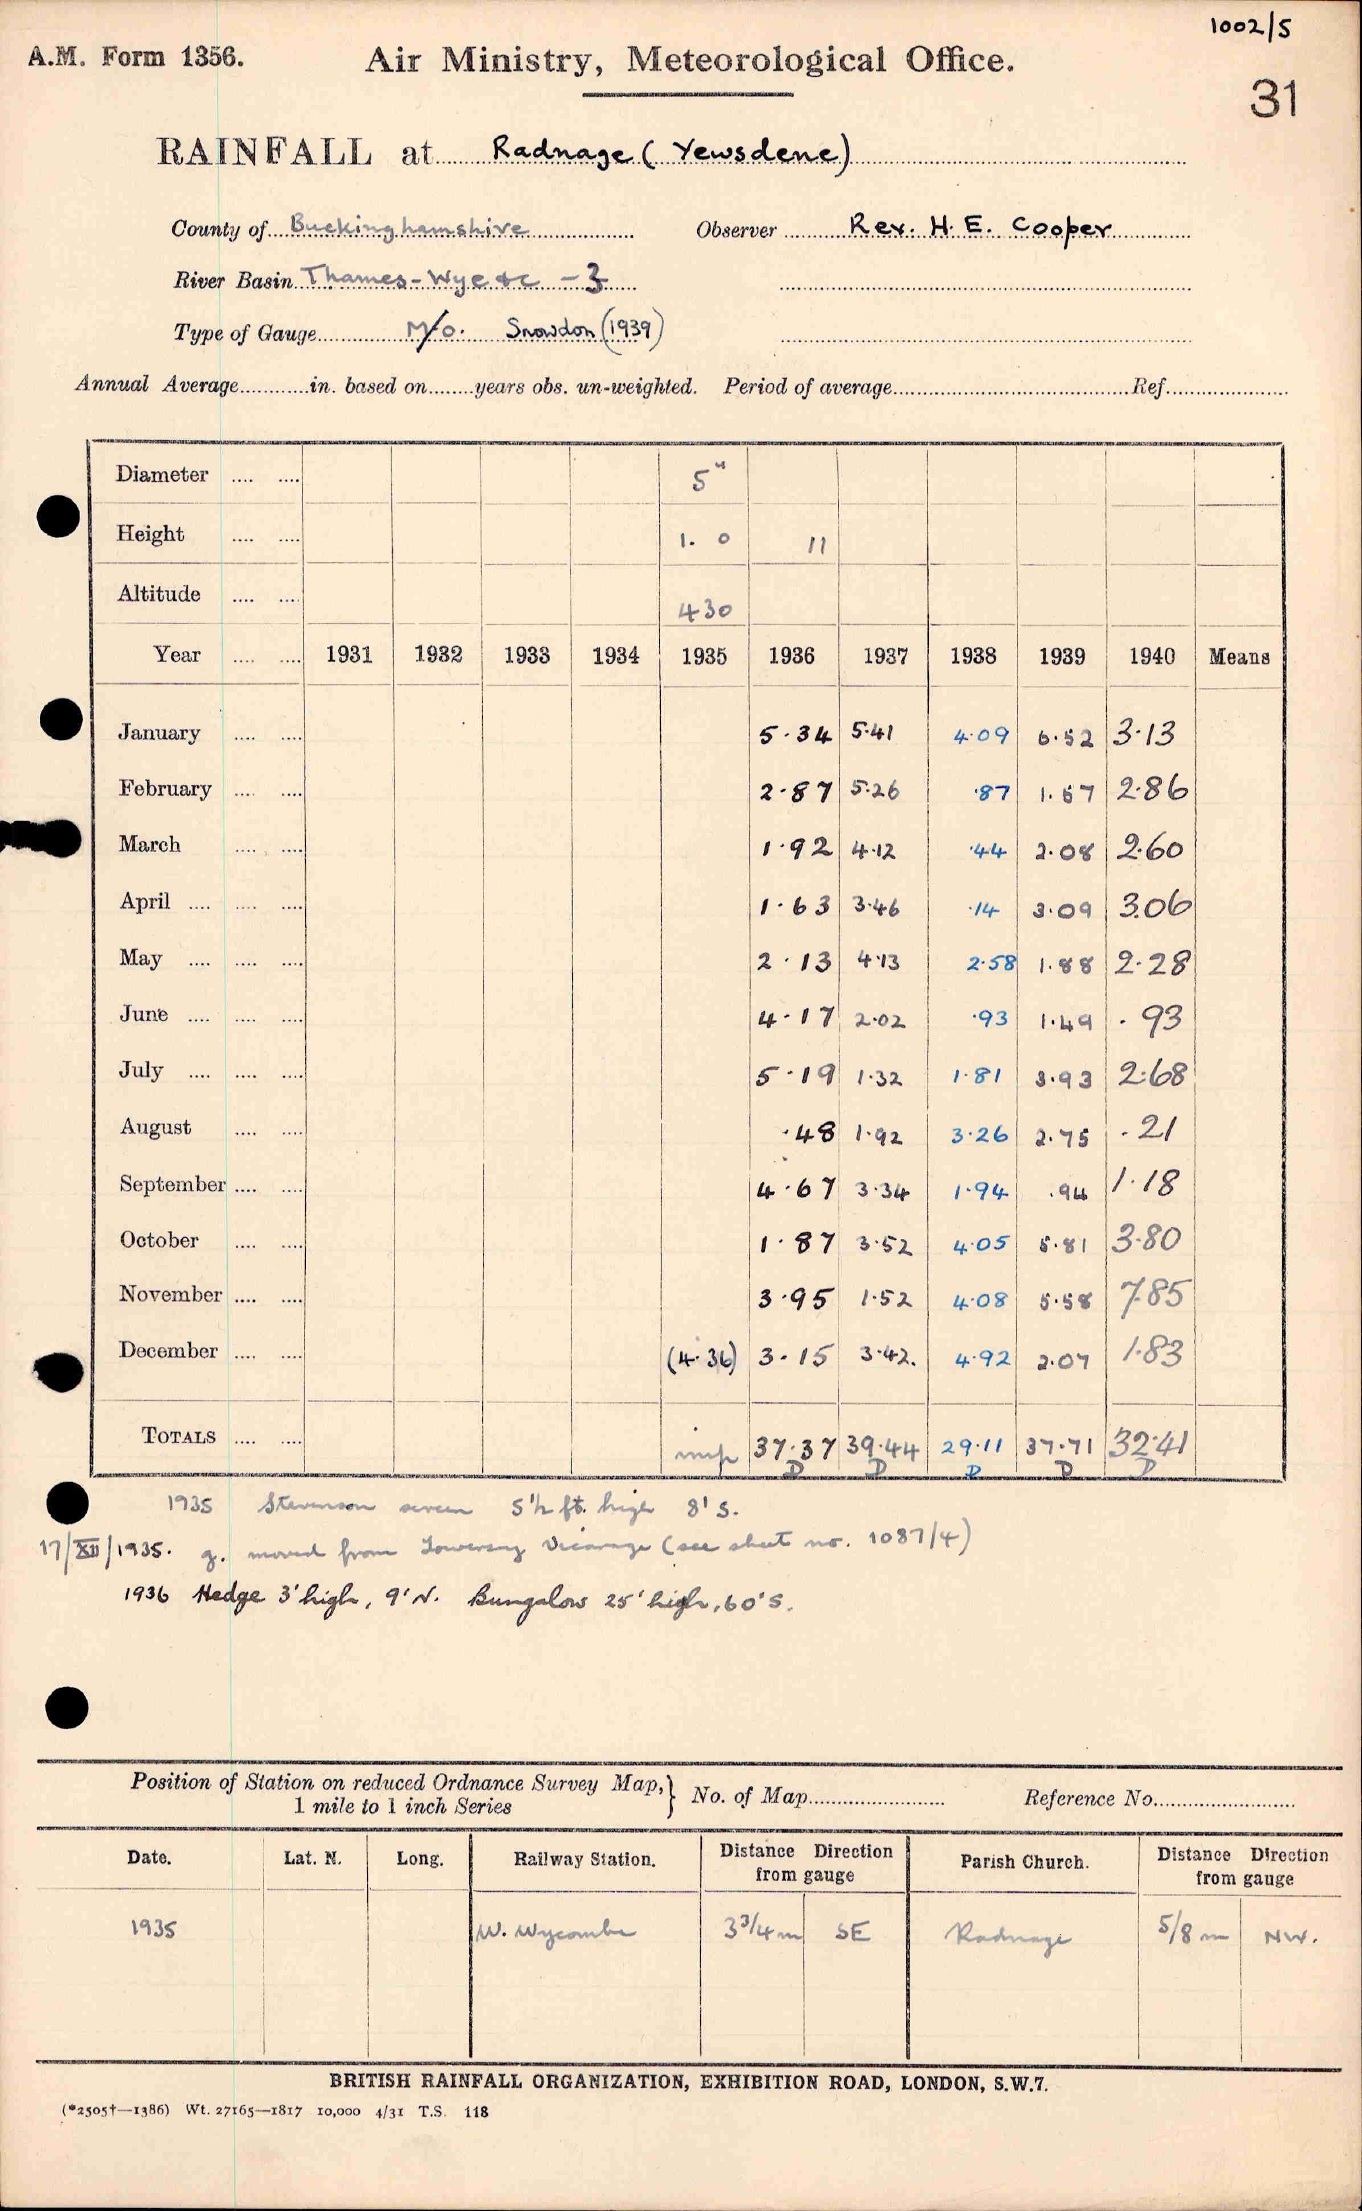 1002/5
A.M. Form 1356. Air Ministry, Meteorological Office.
31
RAINFALL at Radnage (Yewsdene)
County of Buckinghamshire Observer Rev. H. E. Cooper
River Basin Thames - Wye &c - 3
Type of Gauge M/O. Snowdon (1939)
Annual Average in. based on years obs. un-weighted. Period of average Ref.
Diameter 5"
Height 1. 0 11
Altitude 430
Year 1931 1932 1933 1934 1935 1936 1937 1938 1939 1940 Means
January 5.34 5.41 4.09 6.52 3.13
February 2.87 5.26 .87 1.57 2.86
March 1.92 4.12 .44 2.08 2.60
April 1.63 3.46 .14 3.09 3.06
May 2.13 4.13 2.58 1.88 2.28
June 4.17 2.02 .93 1.49 .93
July 5.19 1.32 1.81 3.93 2.68
August .48 1.92 3.26 2.75 .21
September 4.67 3.34 1.94 .94 1.18
October 1.87 3.52 4.05 5.81 3.80
November 3.95 1.52 4.08 5.58 7.85
December (4.36) 3.15 3.42. 4.92 2.07 1.83
TOTALS imp 37.37 39.44 29.11 37.71 32.41
D D D D D
1935 Stevenson screen 5½ ft. high 8' S.
17/XII/1935. g. moved from Towersey Vicarage (see sheet no. 1087/4)
1936 Hedge 3' high, 9' N. Bungalow 25' high, 60' S.
Position of Station on reduced Ordnance Survey Map, 1 mile to 1 inch Series } No. of Map Reference No.
Date. Lat. N. Long. Railway Station. Distance Direction from gauge Parish Church. Distance Direction from gauge
1935 W. Wycombe 3¾ m SE Radnage 5/8 m NW.
BRITISH RAINFALL ORGANIZATION, EXHIBITION ROAD, LONDON, S.W.7.
(*2505†—1386) Wt. 27165—1817 10,000 4/31 T.S. 118